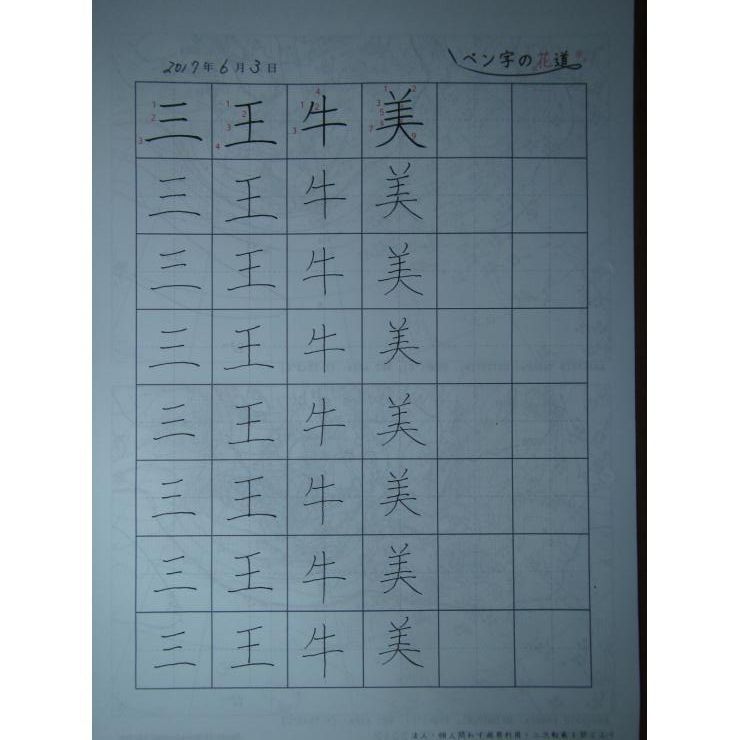 2017年6月3日
ペン字の花道
三 王 牛 美
三 王 牛 美
三 王 牛 美
三 王 牛 美
三 王 牛 美
三 王 牛 美
三 王 牛 美
三 王 牛 美